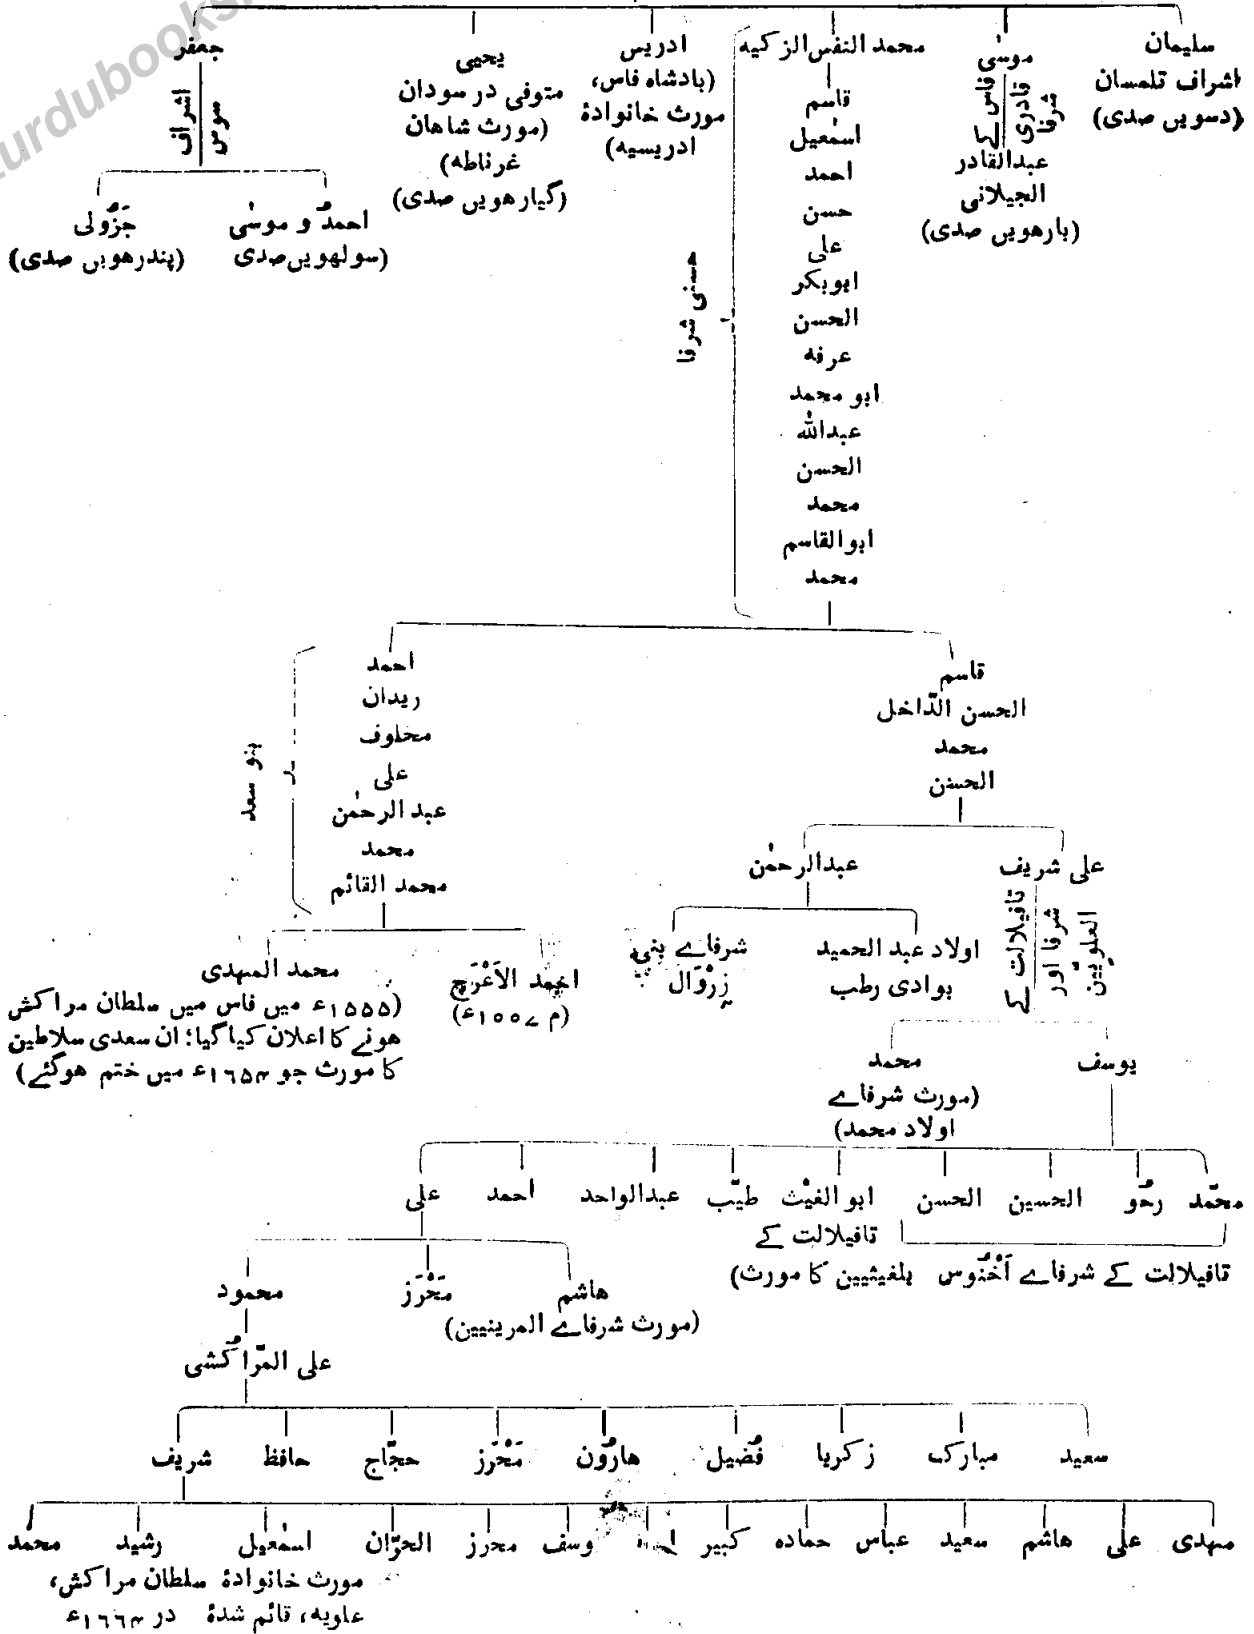 urdubooks
سلیمان
اشراف تلمسان
(دسویں صدی)
موسٰی
فاس کے
قادری
شرفا
عبدالقادر
الجیلانی
(بارھویں صدی)
محمد النفس الزکیه
قاسم
اسمٰعیل
احمد
حسن
علی
ابوبکر
الحسن
عرفه
ابو محمد
عبداللہ
الحسن
محمد
ابوالقاسم
محمد
حسنی شرفا
ادریس
(بادشاہ فاس،
مورث خانوادۂ
ادریسیه)
یحیی
متوفی در سودان
(مورث شاھان
غرناطه)
(گیارھویں صدی)
جعفر
اشراف
سوس
احمدُ و موسٰی
(سولھویں صدی)
جَزُولی
(پندرھویں صدی)
قاسم
الحسن الدّاخل
محمد
الحسن
احمد
ریدان
مخلوف
علی
عبد الرحمٰن
محمد
محمد القائم
بنو سعد
علی شریف
تافیلالت کے
شرفا اور
العلویّین
عبدالرحمٰن
اولاد عبد الحمید
بوادی رطب
شرفاے بنی
زِرْوَال
احمد الاَعْرَج
(م ۱۵۵۷ء)
محمد المہدی
(۱۵۵۵ء میں فاس میں سلطان مراکش
ھونے کا اعلان کیا گیا؛ ان سعدی سلاطین
کا مورث جو ۱۶۵۴ء میں ختم ھوگئے)
یوسف
محمد
(مورث شرفاے
اولاد محمد)
محمّد رحُّو الحسین الحسن ابو الغیْث طیّب عبدالواحد احمد علی
تافیلالت کے
تافیلالت کے شرفاے اَخْنُوس بلغیثیین کا مورث)
ھاشم مَحْرَز محمود
(مورث شرفاے المرینیین)
علی المّراکُشی
سعید مبارک زکریا فُضَیل ھارُون مَحْرَز حجّاج حافظ شریف
مہدی علی ھاشم سعید عباس حماده کبیر محرز الحرّان اسمٰعیل رشید محمّد
مورث خانوادۂ سلطان مراکش،
علویه، قائم شدۂ در ۱۶۶۴ء